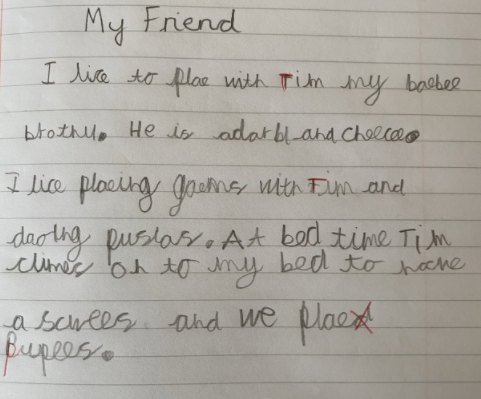 My Friend
I lice to plae with Tim my baebee
brothu. He is adorbl and cheecae.
I lice placing gaems with Tim and
daoing puslas. At bed time Tim
climes on to my bed to
a scwees and we plae
Pupees.